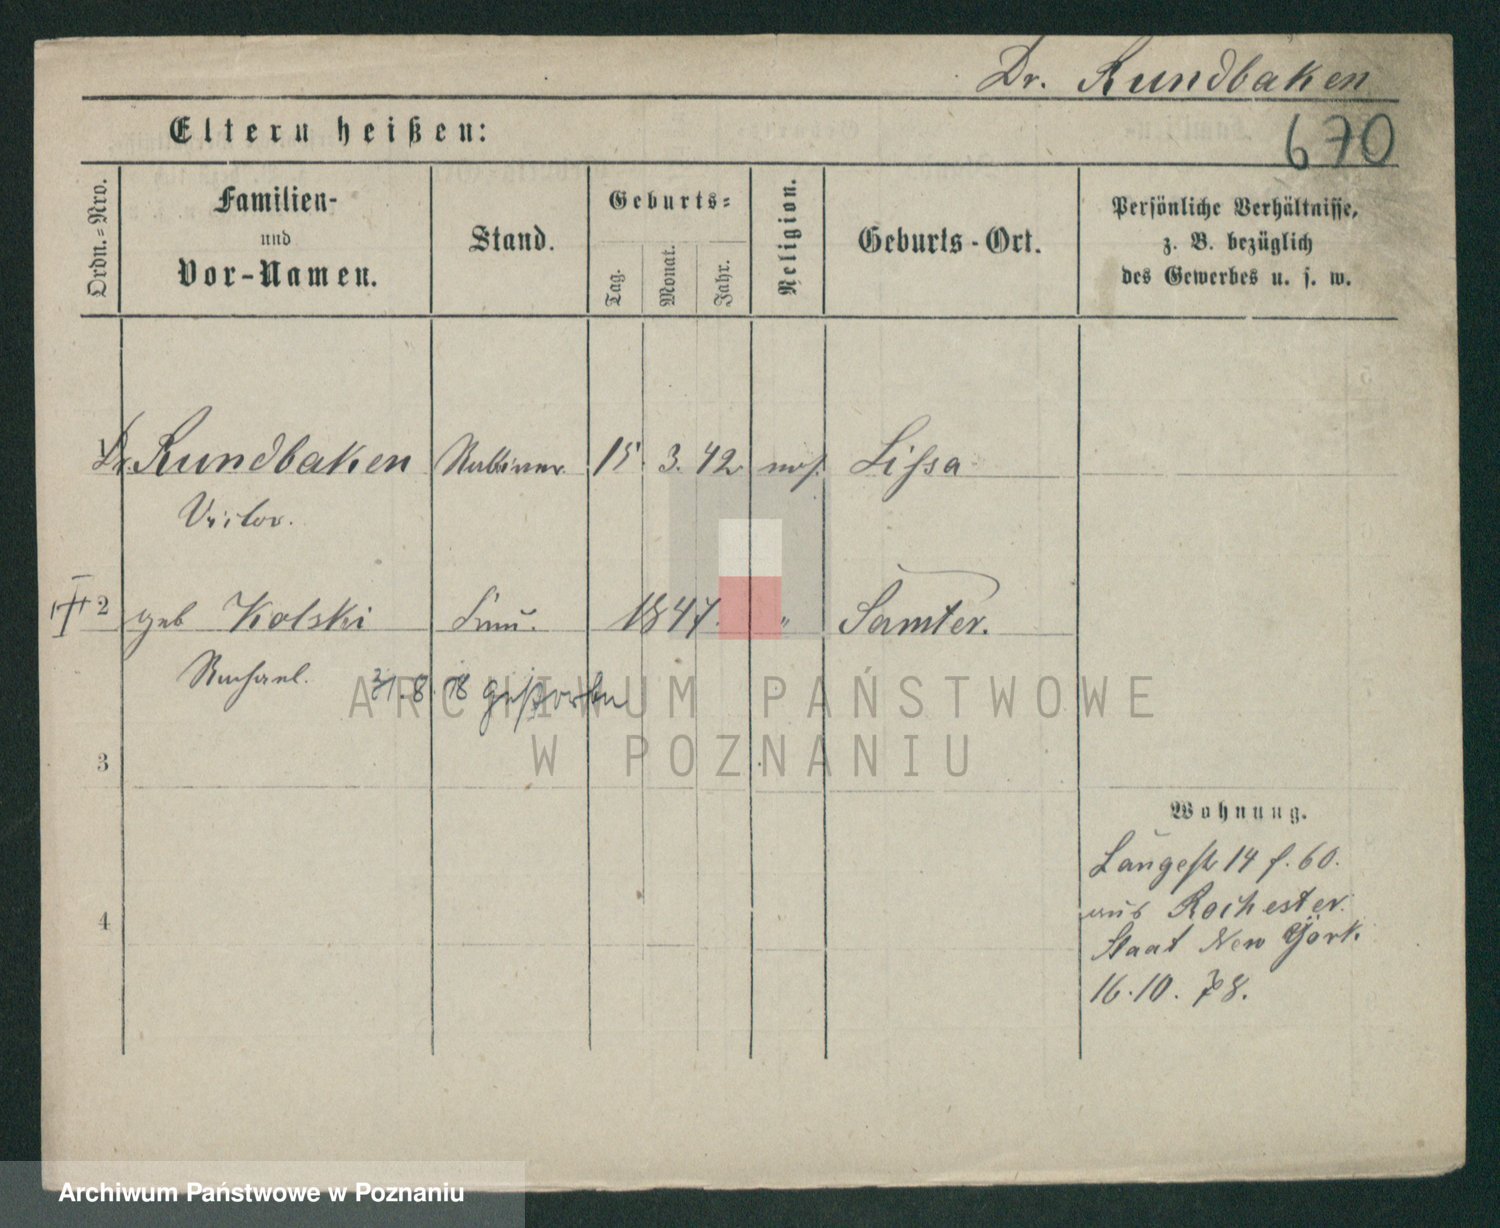 Dr. Rundbaken
Eltern heißen:
670
Ordn.=Nro.
Familien-
und
Vor-Namen.
Stand.
Geburts=
Tag.
Monat.
Jahr.
Religion.
Geburts-Ort.
Persönliche Verhältnisse,
z. B. bezüglich
des Gewerbes u. s. w.
1 Dr. Rundbaken Rabbiner 15. 3. 42 mos. Lissa
Victor.
2 geb Kolski Frau. 1847. " Samter.
Rachael. 31.8.78 gestorben
3
4
Wohnung.
Langestr 14 f. 60.
aus Rochester.
Staat New York.
16.10.78.
ARCHIWUM PAŃSTWOWE
W POZNANIU
Archiwum Państwowe w Poznaniu